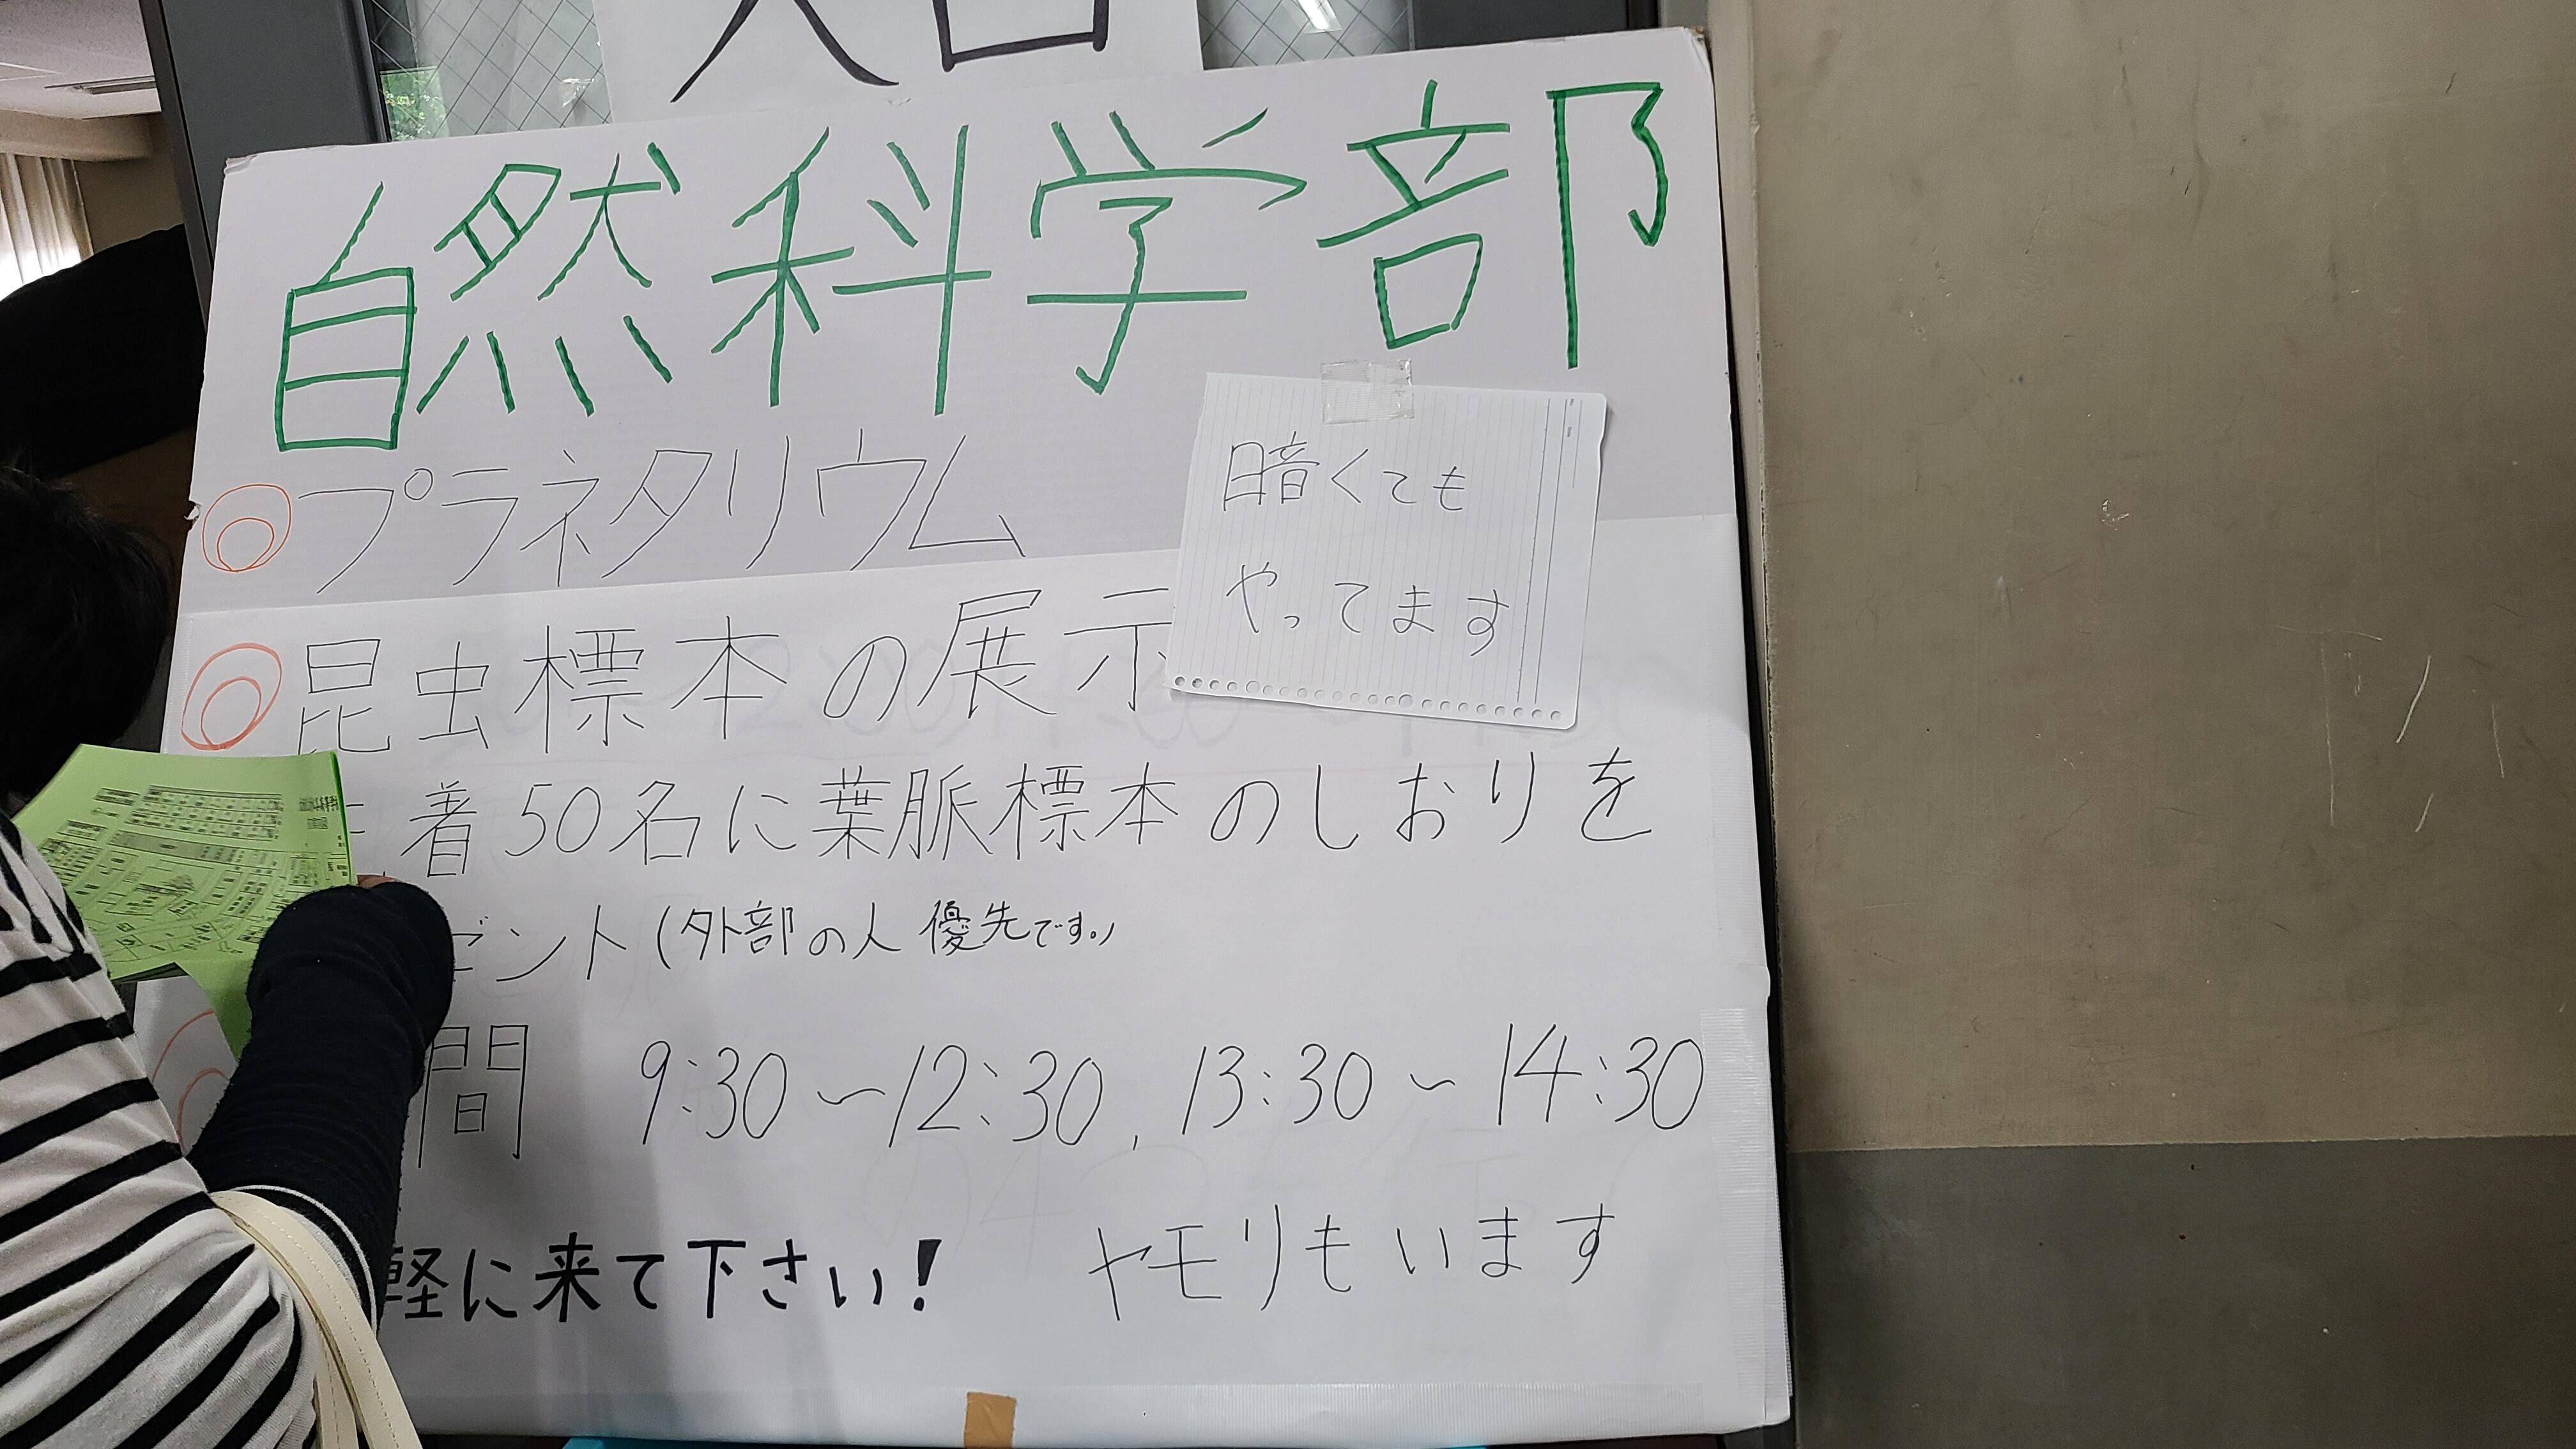 入口
自然科学部
◎プラネタリウム
暗くても
やってます
◎昆虫標本の展示
着50名に葉脈標本のしおりを
ゼント(外部の人優先です。)
間 9:30~12:30, 13:30~14:30
軽に来て下さい!
ヤモリもいます